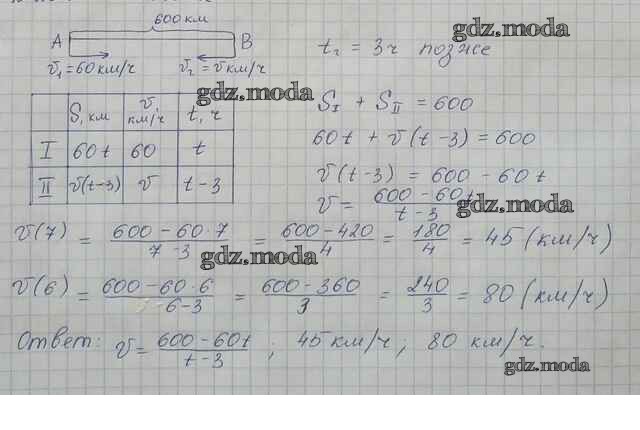 600 км
gdz.moda
A B
v₁ = 60 км/ч v₂ = v км/ч
t₂ = 3 ч позже
gdz.moda
S, км v, км/ч t, ч
I 60t 60 t
II v(t-3) v t-3
S_I + S_II = 600
60t + v(t-3) = 600
v(t-3) = 600 - 60t
v = (600 - 60t)/(t-3)
gdz.moda
v(7) = (600 - 60·7)/(7-3) = (600 - 420)/4 = 180/4 = 45 (км/ч)
gdz.moda
v(6) = (600 - 60·6)/(6-3) = (600 - 360)/3 = 240/3 = 80 (км/ч)
Ответ: v = (600 - 60t)/(t-3); 45 км/ч; 80 км/ч.
gdz.moda